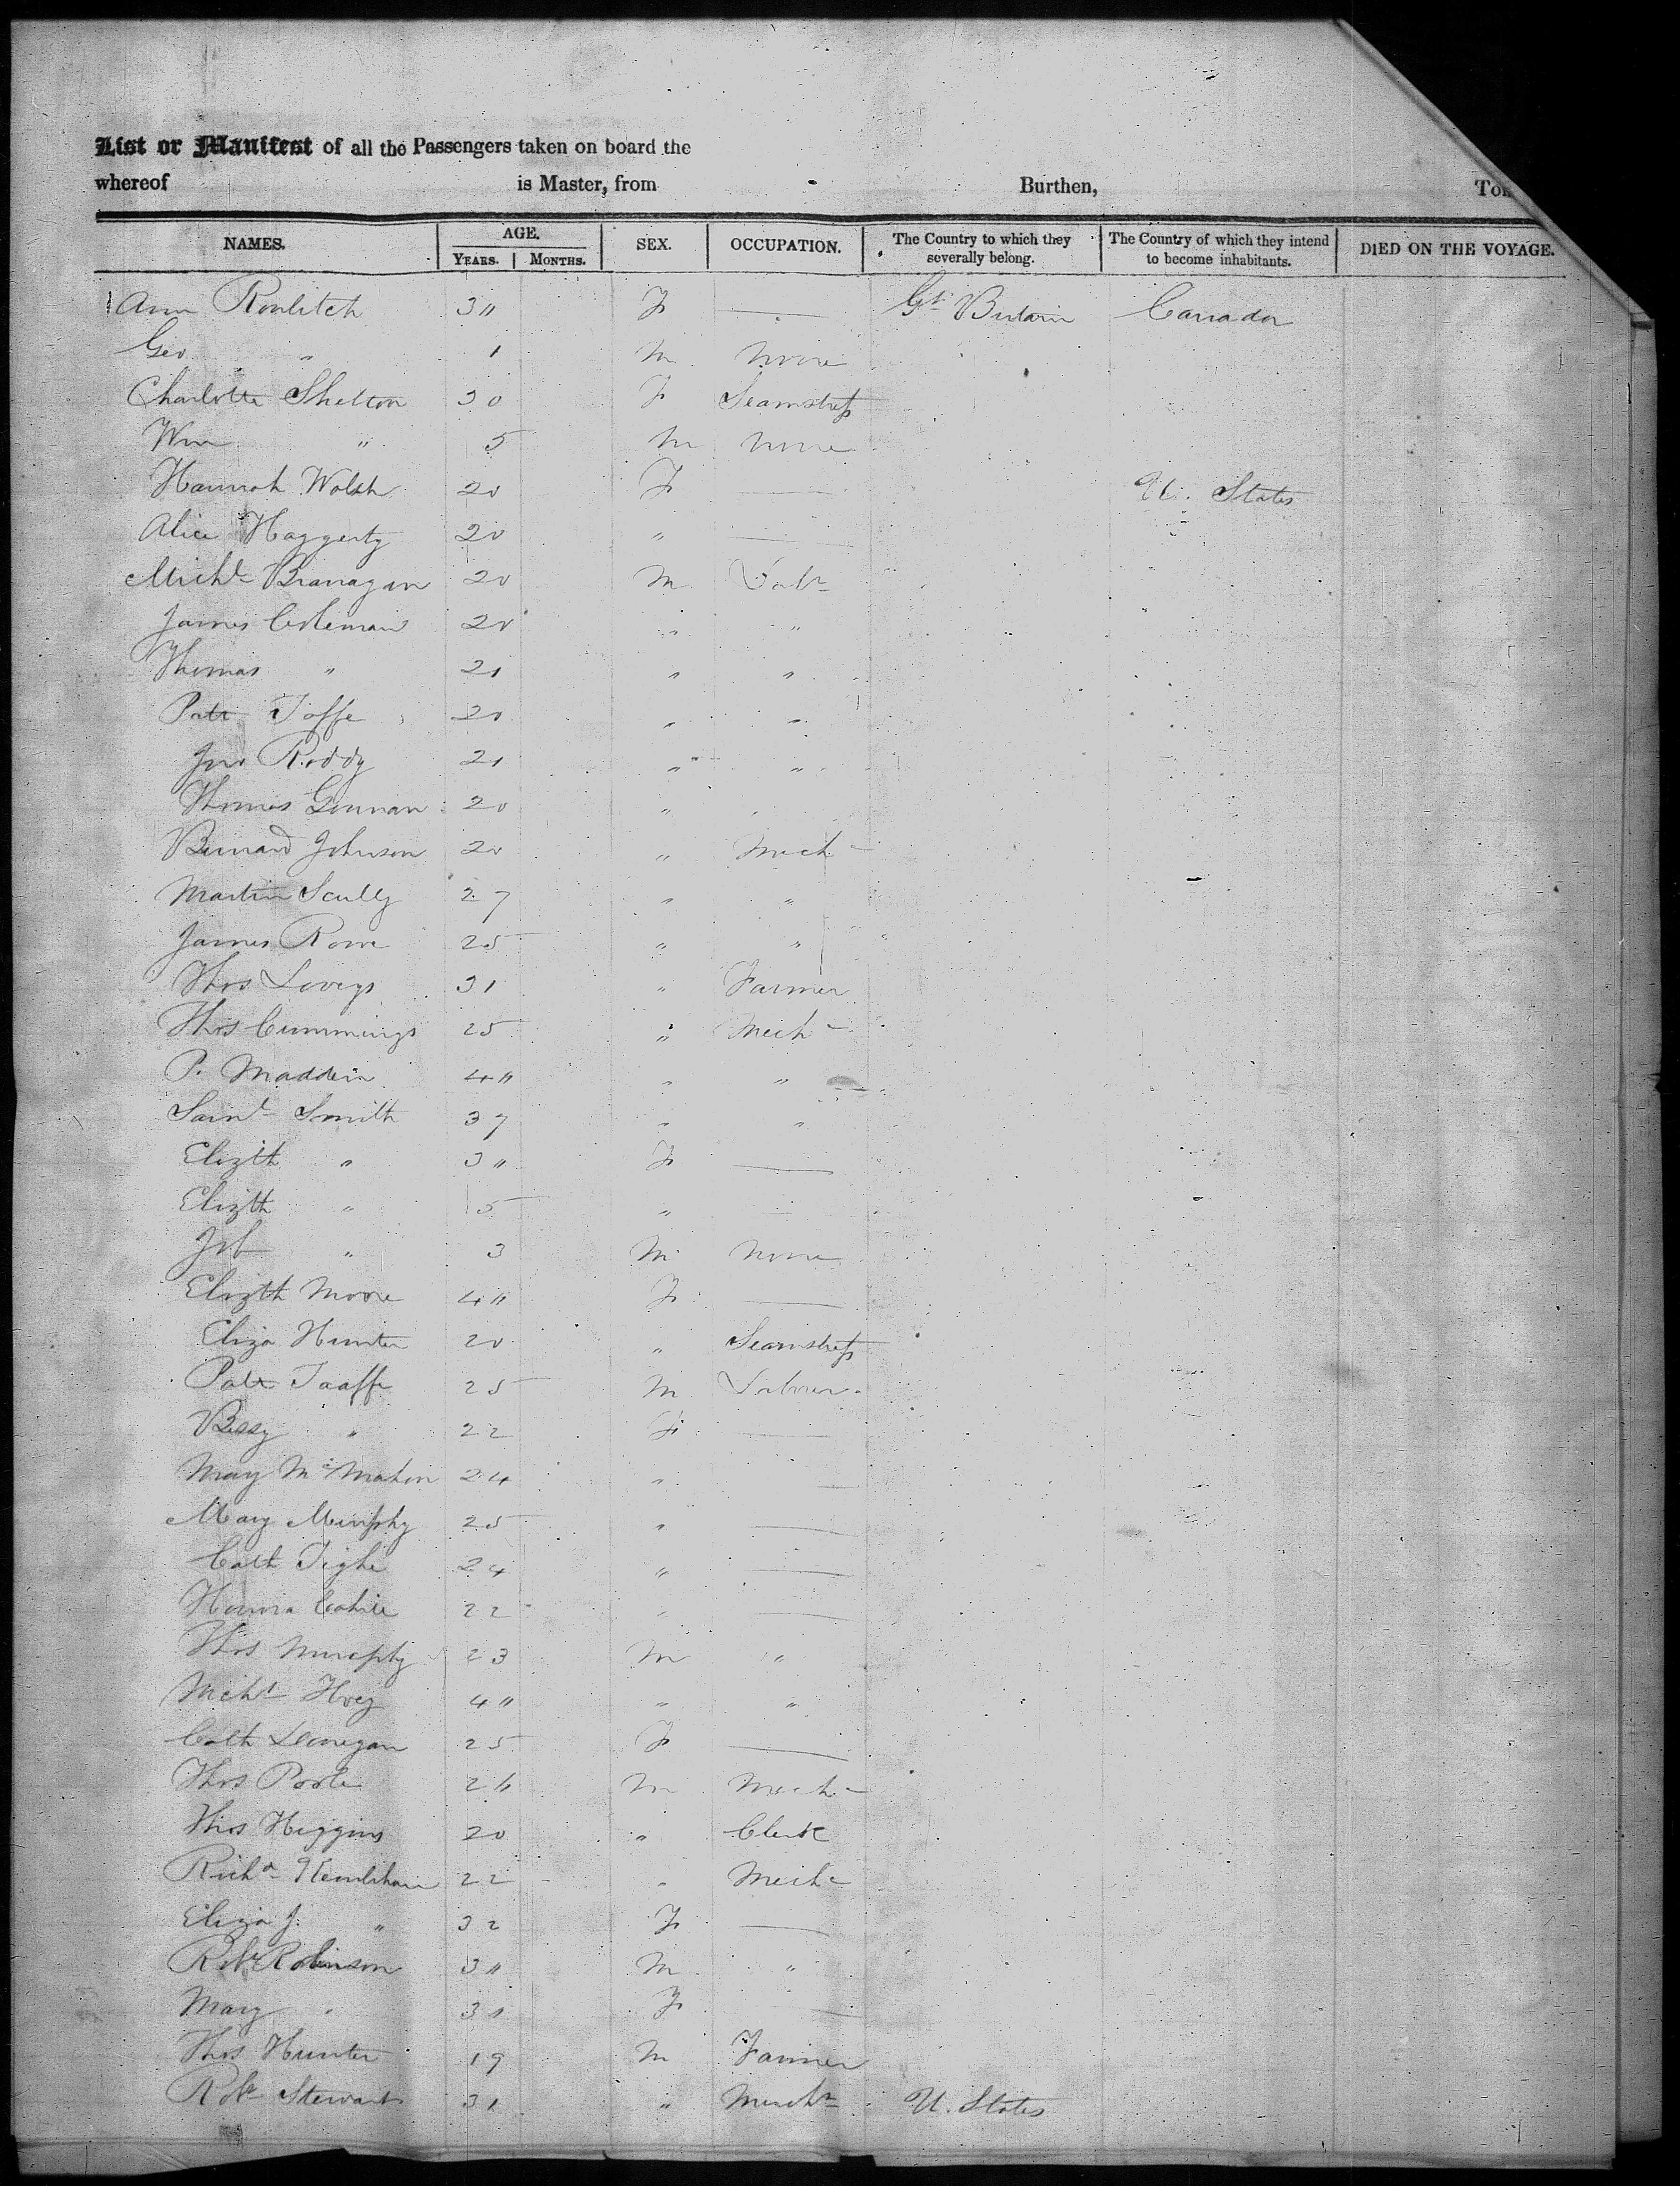 List or Manifest of all the Passengers taken on board the
whereof is Master, from Burthen, Ton
NAMES. AGE. YEARS. MONTHS. SEX. OCCUPATION. The Country to which they severally belong. The Country of which they intend to become inhabitants. DIED ON THE VOYAGE.
Ann 3" F — Gt Britain Canada
Geo " 1 M None
Charlotte Shelton 30 F Seamstress
Wm " 5 M None
Hannah Walsh 20 F — U. States
Alice Haggerty 20 " —
Michl Branagan 20 M Labr
James Coleman 20 " "
Thomas " 21 " "
Patk Taffe 20 " "
Jno Roddy 21 " "
Thomas 20 "
Bernard Johnson 20 " Mech
Martin Scully 27 " "
James Rowe 25 " "
Thos 31 " Farmer
Thos Cummings 25 " Mech
P. Madden 4" " "
Saml Smith 37 " "
Elizth " 3" F —
Elizth " 5 "
Job " 3 M None
Elizth Moore 4" F —
Eliza Hunter 20 " Seamstress
Patk Taaffe 25 M Labour
Bessy " 22 F —
Mary McMahon 24 " —
Mary Murphy 25 " —
Cath Tighe 24 " —
Honora Cahill 22 " —
Thos Murphy 23 M "
Michl Hoey 4" " "
Cath 25 F —
Thos Poole 26 M Mech
Thos Higgins 20 " Clerk
Richd 22 " Mech
Eliza J. " 32 F —
Robt Robinson 3" M "
Mary " 31 F —
Thos Hunter 19 M Farmer
Robt Stewart 31 " Mercht U. States